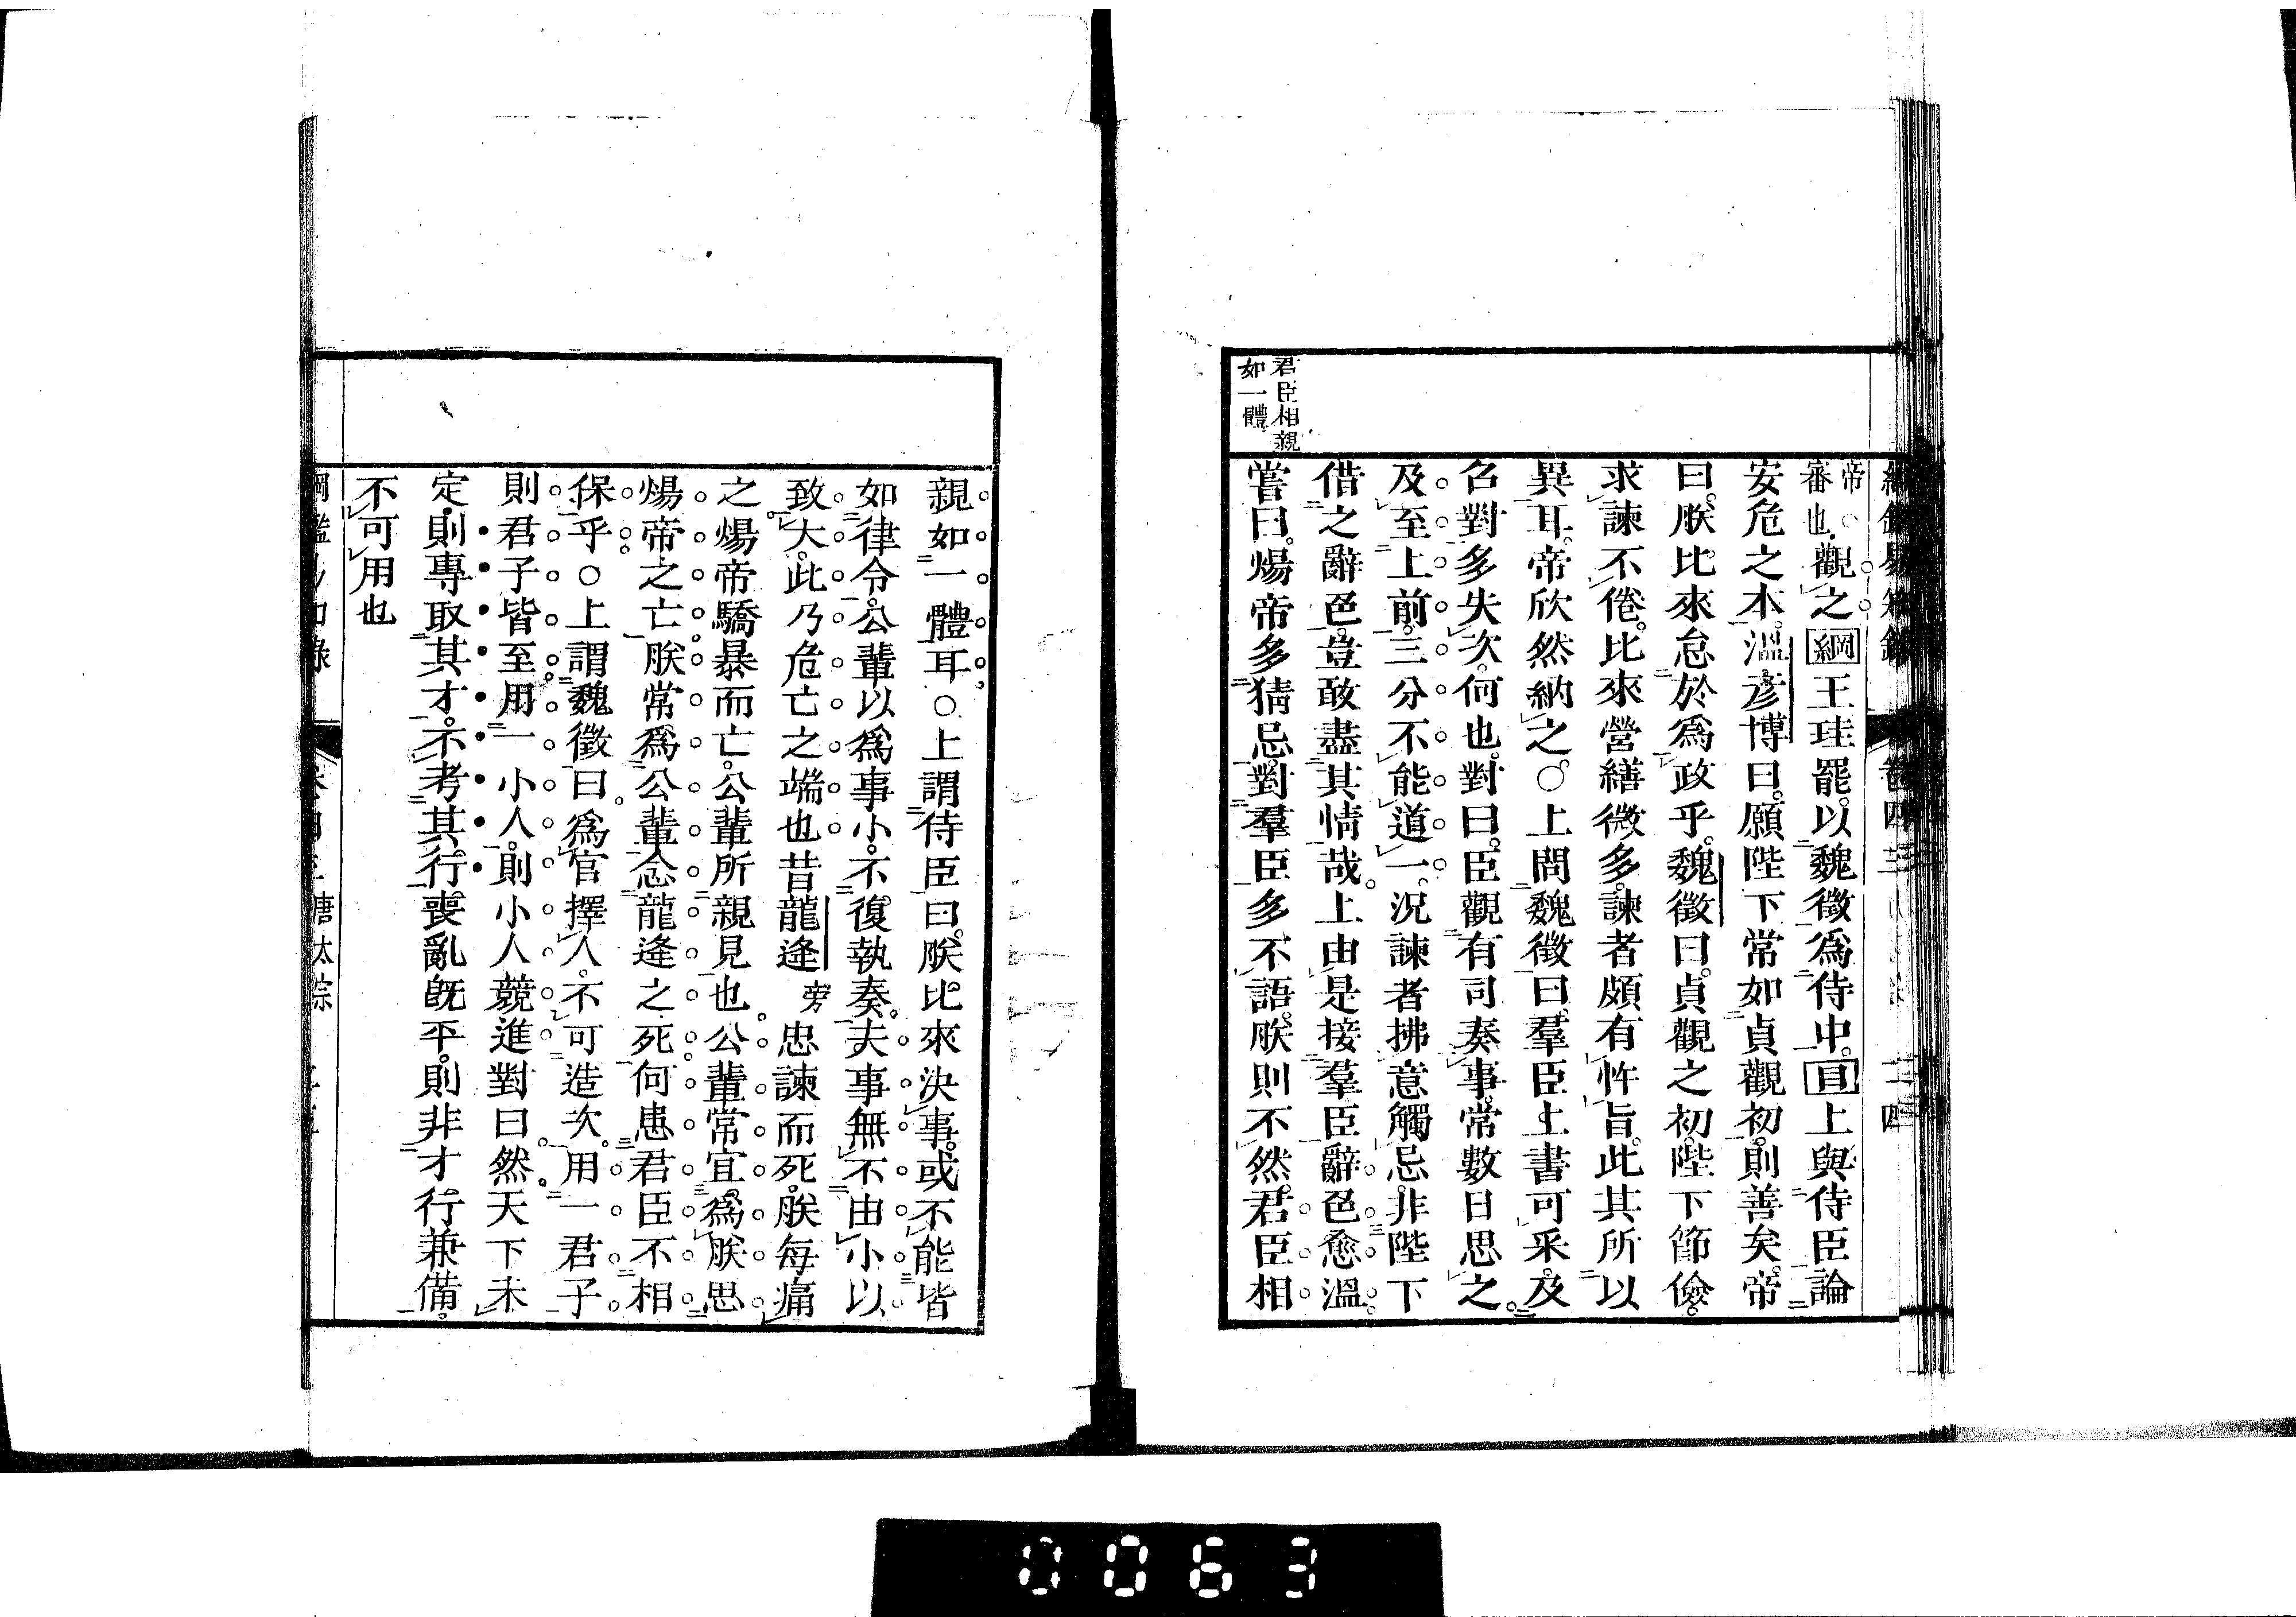 君臣相親
如一體
帝
審也觀之綱王珪罷以魏徵爲侍中目上與侍臣論
安危之本溫彥博曰願陛下常如貞觀初則善矣帝
曰朕比來怠於爲政乎魏徵曰貞觀之初陛下節儉
求諫不倦比來營繕微多諫者頗有忤旨此其所以
異耳帝欣然納之○上問魏徵曰羣臣上書可采及
召對多失次何也對曰臣觀有司奏事常數日思之
及至上前三分不能道一況諫者拂意觸忌非陛下
借之辭色豈敢盡其情哉上由是接羣臣辭色愈溫
嘗曰煬帝多猜忌對羣臣多不語朕則不然君臣相
親如一體耳○上謂侍臣曰朕比來決事或不能皆
如律令公輩以爲事小不復執奏夫事無不由小以
致大此乃危亡之端也昔龍逄旁忠諫而死朕每痛
之煬帝驕暴而亡公輩所親見也公輩常宜爲朕思
煬帝之亡朕常爲公輩念龍逄之死何患君臣不相
保乎○上謂魏徵曰爲官擇人不可造次用一君子
則君子皆至用一小人則小人競進對曰然天下未
定則專取其才不考其行喪亂旣平則非才行兼備
不可用也
唐太宗
0063